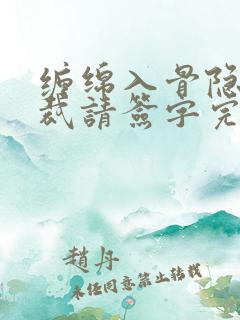 缠绵入骨隐
裁請簽字完
趙丹
未任同意禁止转载